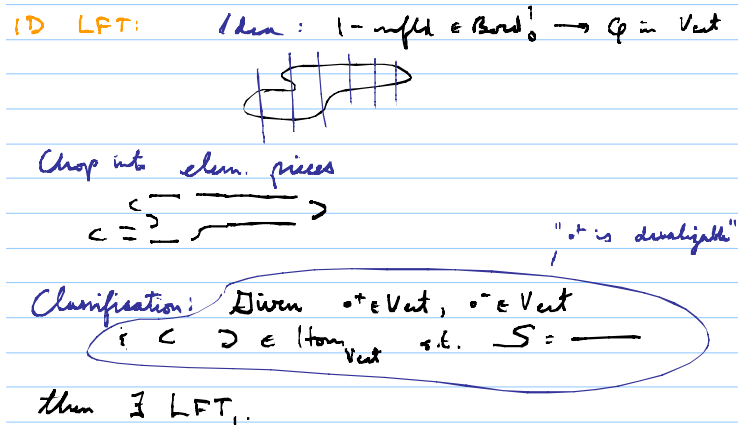 1D LFT: Idea: 1-mfld ∈ Bord₀¹ → φ in Vect
Chop into elem. pieces
"•⁺ is dualizable"
Classification: Given •⁺ ∈ Vect, •⁻ ∈ Vect
& ⊂ ⊃ ∈ Hom_Vect s.t. S = —
then ∃ LFT₁.